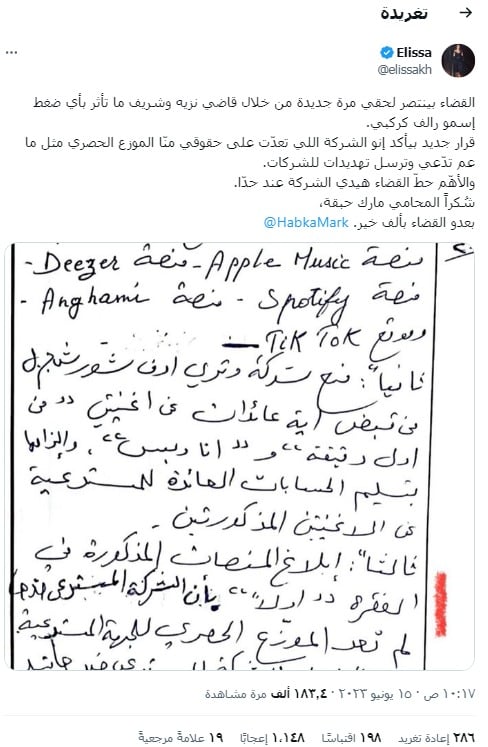 تغريدة
Elissa
@elissakh
القضاء بينتصر لحقي مرة جديدة من خلال قاضي نزيه وشريف ما تأثر بأي ضغط
إسمو رالف كركبي.
قرار جديد بيأكد إنو الشركة اللي تعدّت على حقوقي منّا الموزع الحصري مثل ما
عم تدّعي وترسل تهديدات للشركات.
والأهم حطّ القضاء هيدي الشركة عند حدّا.
شكراً المحامي مارك حبقة،
بعدو القضاء بألف خير. @HabkaMark
منصة Apple Music - منصة Deezer -
منصة Spotify - منصة Anghami -
وموقع TiK ToK
ثانياً: منع شركة وتري اوف شور ش.م.ل
من قبض أية عائدات عن اغنيتي "من
اول دقيقة" و "انا وبس"، والزامها
بتسليم الحسابات العائدة للمستدعية
عن الاغنيتين المذكورتين -
ثالثاً: إبلاغ المنصات المذكورة في
الفقرة "اولاً" بأن الشركة المستدعى ضدها
لم تعد الموزع الحصري للجهة المستدعية
١٠:١٧ ص · ١٥ يونيو ٢٠٢٣ · ١٨٣٫٤ ألف مرة مشاهدة
٢٨٦ إعادة تغريد ١٩٨ اقتباسًا ١٬١٤٨ إعجابًا ١٩ علامةً مرجعيةً